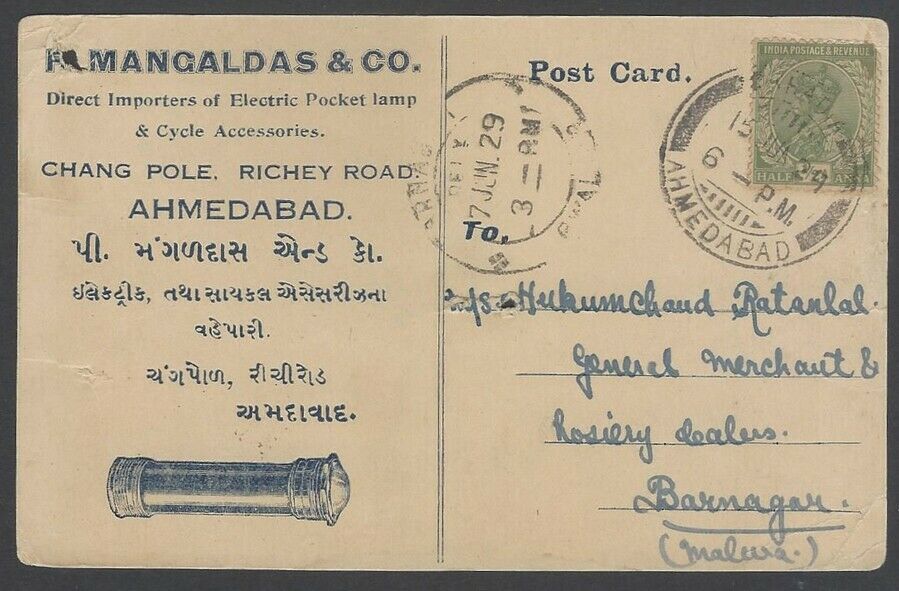 P. MANGALDAS & CO.
Direct Importers of Electric Pocket lamp
& Cycle Accessories.
CHANG POLE, RICHEY ROAD
AHMEDABAD.
પી. મંગળદાસ એન્ડ કો.
ઇલેકટ્રીક, તથા સાયકલ એસેસરીઝના
વહેપારી.
ચંગપોળ, રીચીરોડ
અમદાવાદ.
Post Card.
INDIA POSTAGE & REVENUE
HALF ANNA
15 JUN. 29
6 P.M.
AHMEDABAD
7 JUN. 29
3
To,
M/S Hukumchand Ratanlal.
General Merchant &
hosiery dealers.
Barnagar.
(Malwa.)